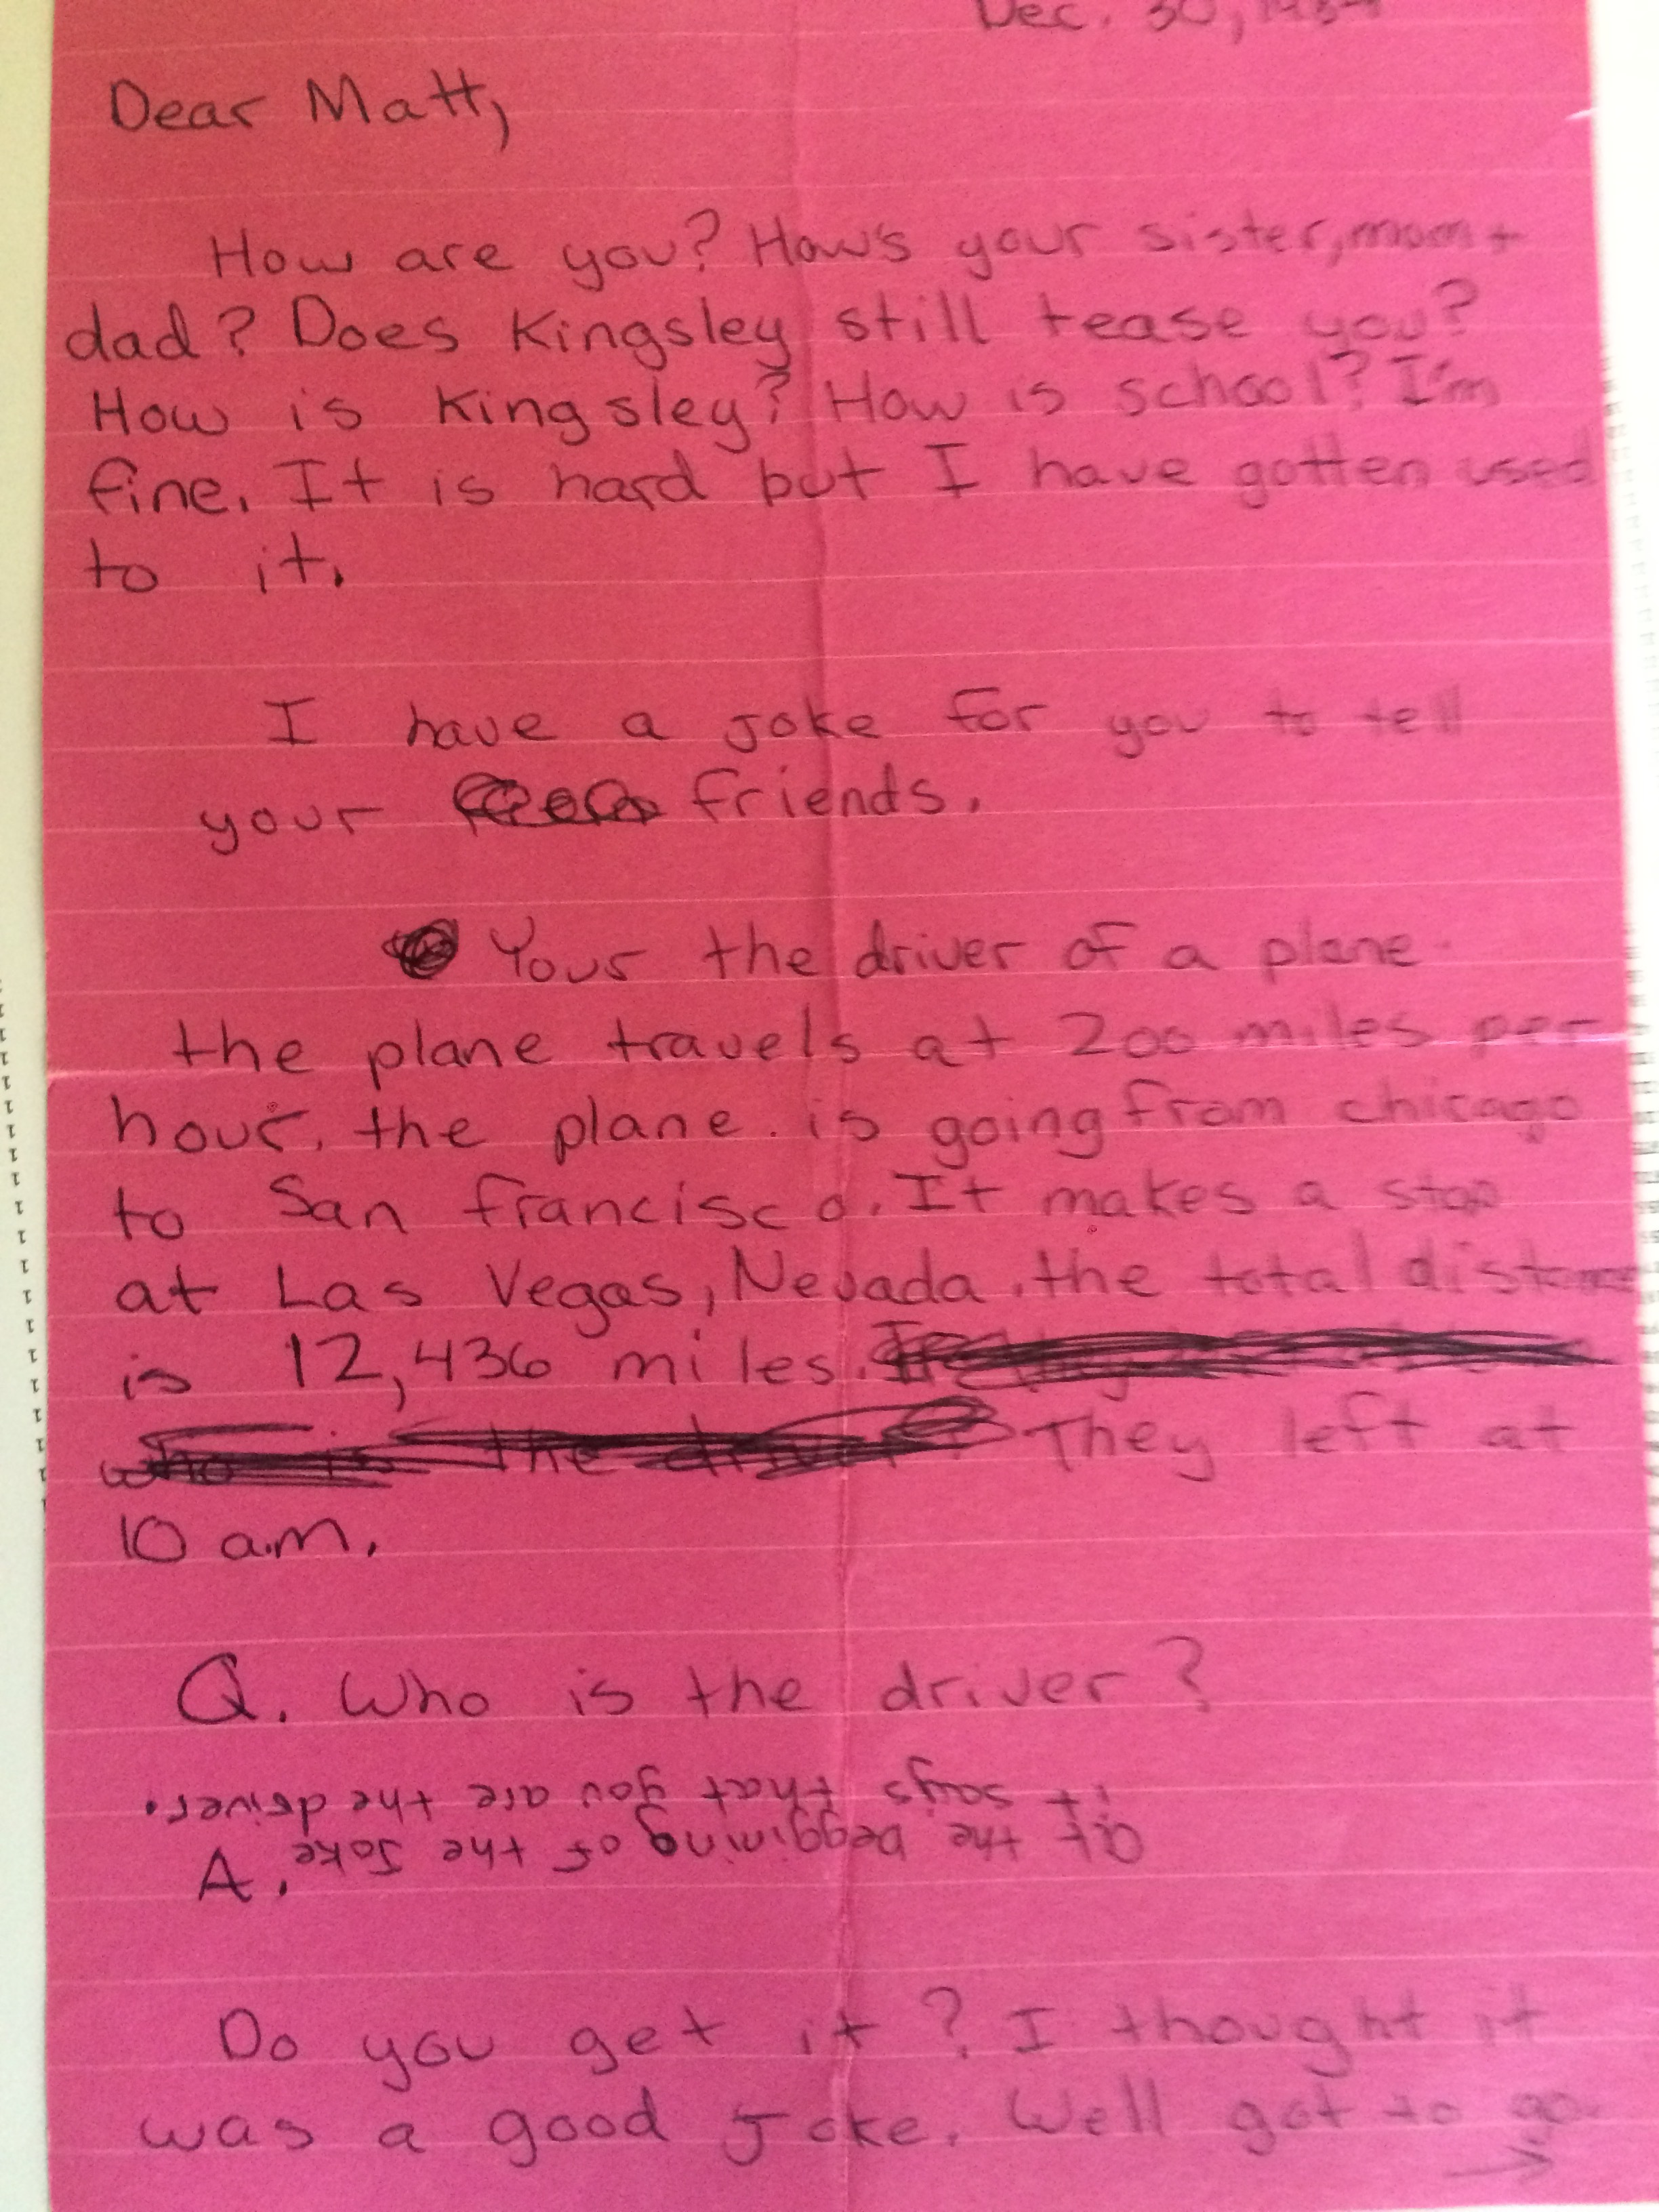 Dec. 30,
Dear Matt,
How are you? How's your sister, mom +
dad? Does Kingsley still tease you?
How is Kingsley? How is school? I'm
fine. It is hard but I have gotten used
to it.
I have a joke for you to tell
your friends.
Your the driver of a plane.
the plane travels at 200 miles per
hour. the plane. is going from chicago
to San francisco. It makes a stop
at Las Vegas, Nevada. the total distance
is 12,436 miles.
who is the driver? They left at
10 a.m.
Q. Who is the driver?
A. at the beggining of the Joke
it says that you are the driver.
Do you get it? I thought it
was a good Joke. Well got to go
→